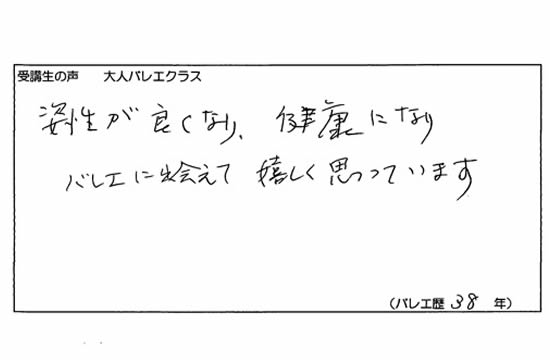 受講生の声　大人バレエクラス
姿性が良くなり、健康になり
バレエに出会えて 嬉しく思っています
（バレエ歴 38 年）